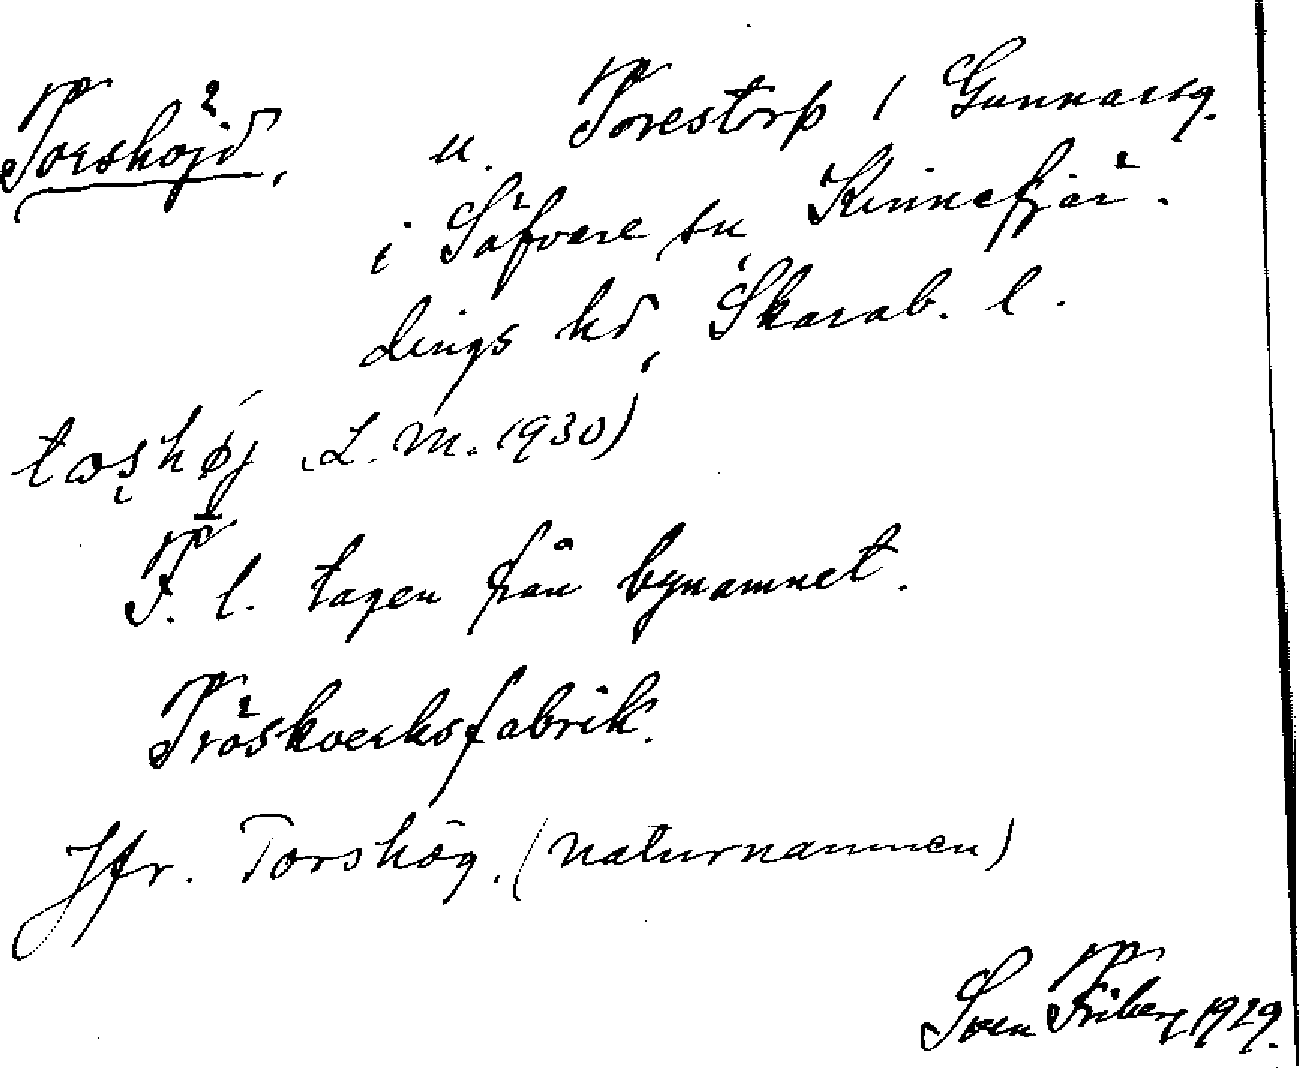 Torshöjd, u. Torestorp 1 Gunnarsg.
i Säfvare sn, Kinnefjär-
dings hd, Skarab. l.
tɷs̨høj (L.M. 1930)
F. l. tagen från bynamnet.
Tröskverksfabrik.
Jfr. Torshög. (naturnamnen)
Sven Friberg 1929.